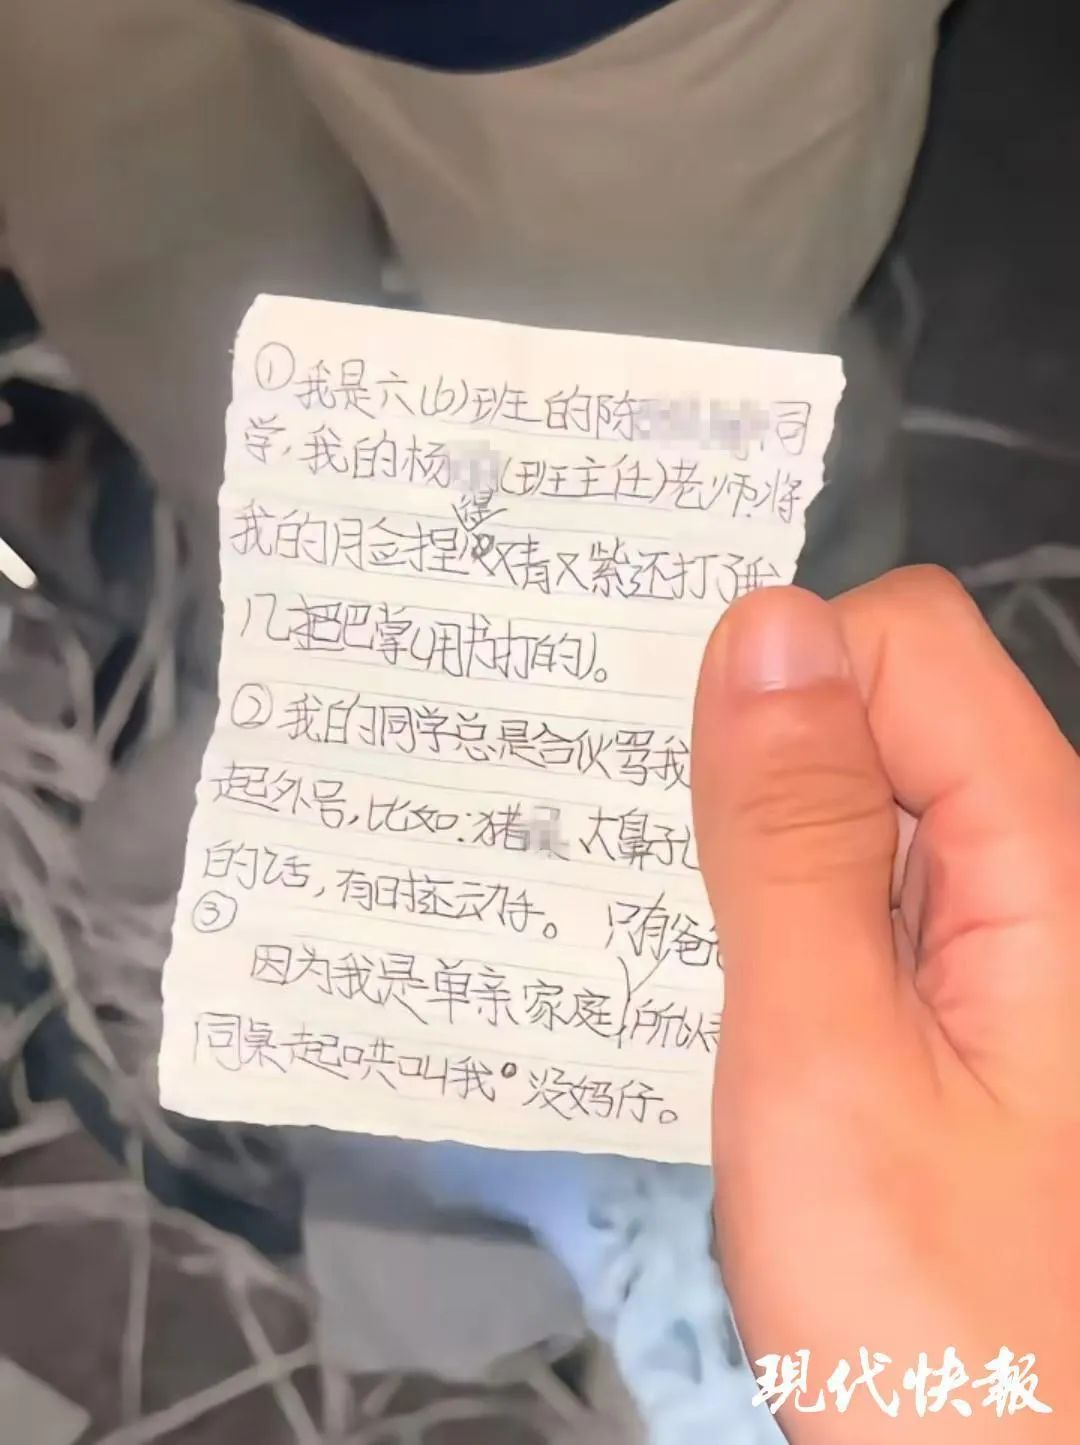 ①我是六(6)班的陈 同
学,我的杨 (班主任)老师将
我的脸捏得又青又紫还打了我
几把巴掌(用书打的)。
②我的同学总是合伙骂我
起外号,比如:猪 大鼻孔
的话,有时还动手。
③
因为我是单亲家庭,只有爸爸 所以
同桌起哄叫我 没妈仔。
现代快報